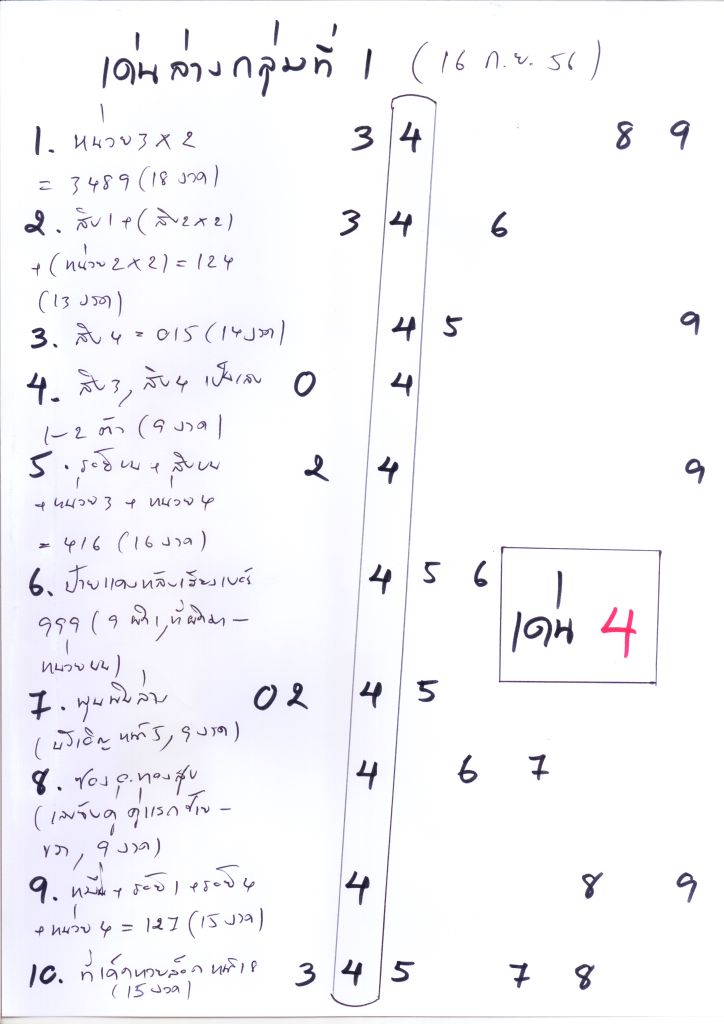 เด่นล่างกลุ่มที่ 1 (16 ก.ย. 56)
1. หน่วย 3 x 2 3 4 8 9
= 3489 (18 งวด)
2. สิบ 1 + (สิบ 2 x 2) 3 4 6
+ (หน่วย 2 x 2) = 124
(13 งวด)
3. สิบ 4 = 015 (14 งวด) 4 5 9
4. สิบ 3, สิบ 4 เป็นเลข 0 4
1-2 ตัว (9 งวด)
5. + สิบบน 2 4 9
+ หน่วย 3 + หน่วย 4
= 416 (16 งวด)
6. ป้ายแดงหลังเลี่ยงเบอร์ 4 5 6
999 (
หน่วยบน)
7. ล่าง 02 4 5
( หน้า 5, 9 งวด)
8. ซอง 4 6 7
( คู่แรก
9 งวด)
9. หมื่น + ร้อย 1 + ร้อย 4 4 8 9
+ หน่วย 4 = 127 (15 งวด)
10. ที่เด็ดหวยล็อค หน้า 18 3 4 5 7 8
(15 งวด)
เด่น 4